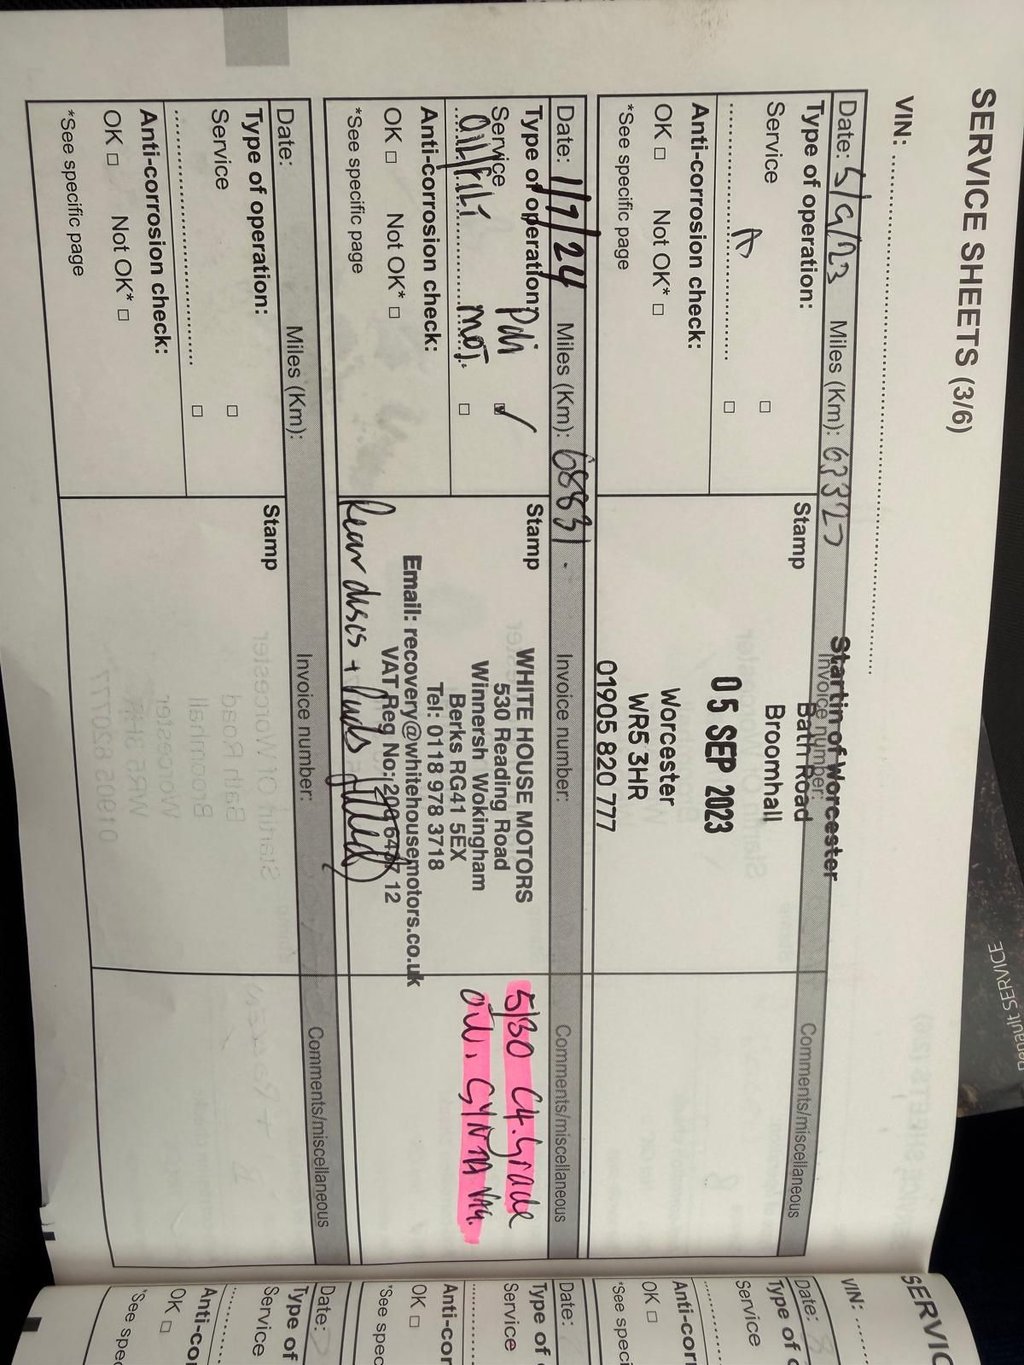 SERVICE SHEETS (3/6)
VIN:
Date: 5/9/23 Miles (Km): 63327 Invoice number:
Type of operation:
Service
A
Anti-corrosion check:
OK □ Not OK* □
*See specific page
Stamp
Startin of Worcester
Bath Road
Broomhall
05 SEP 2023
Worcester
WR5 3HR
01905 820 777
Comments/miscellaneous
Date: 1/7/24 Miles (Km): 68831. Invoice number:
Type of operation:
Service Pdi ✓
OIL/FILT MOT.
Anti-corrosion check:
OK □ Not OK* □
*See specific page
Stamp
WHITE HOUSE MOTORS
530 Reading Road
Winnersh Wokingham
Berks RG41 5EX
Tel: 0118 978 3718
Email: recovery@whitehousemotors.co.uk
VAT Reg No:
Rear discs + Pads fitted
Comments/miscellaneous
5/30 C4. Grade
OIL.
Date: Miles (Km): Invoice number:
Type of operation:
Service
Anti-corrosion check:
OK □ Not OK* □
*See specific page
Stamp
Comments/miscellaneous
Renault SERVICE
SERVIC
VIN:
Date:
Type of
Service
Anti-cor
OK □
*See speci
Date:
Type of
Service
Anti-cor
OK □
*See spec
Date:
Type of
Service
Anti-co
OK □
*See spec